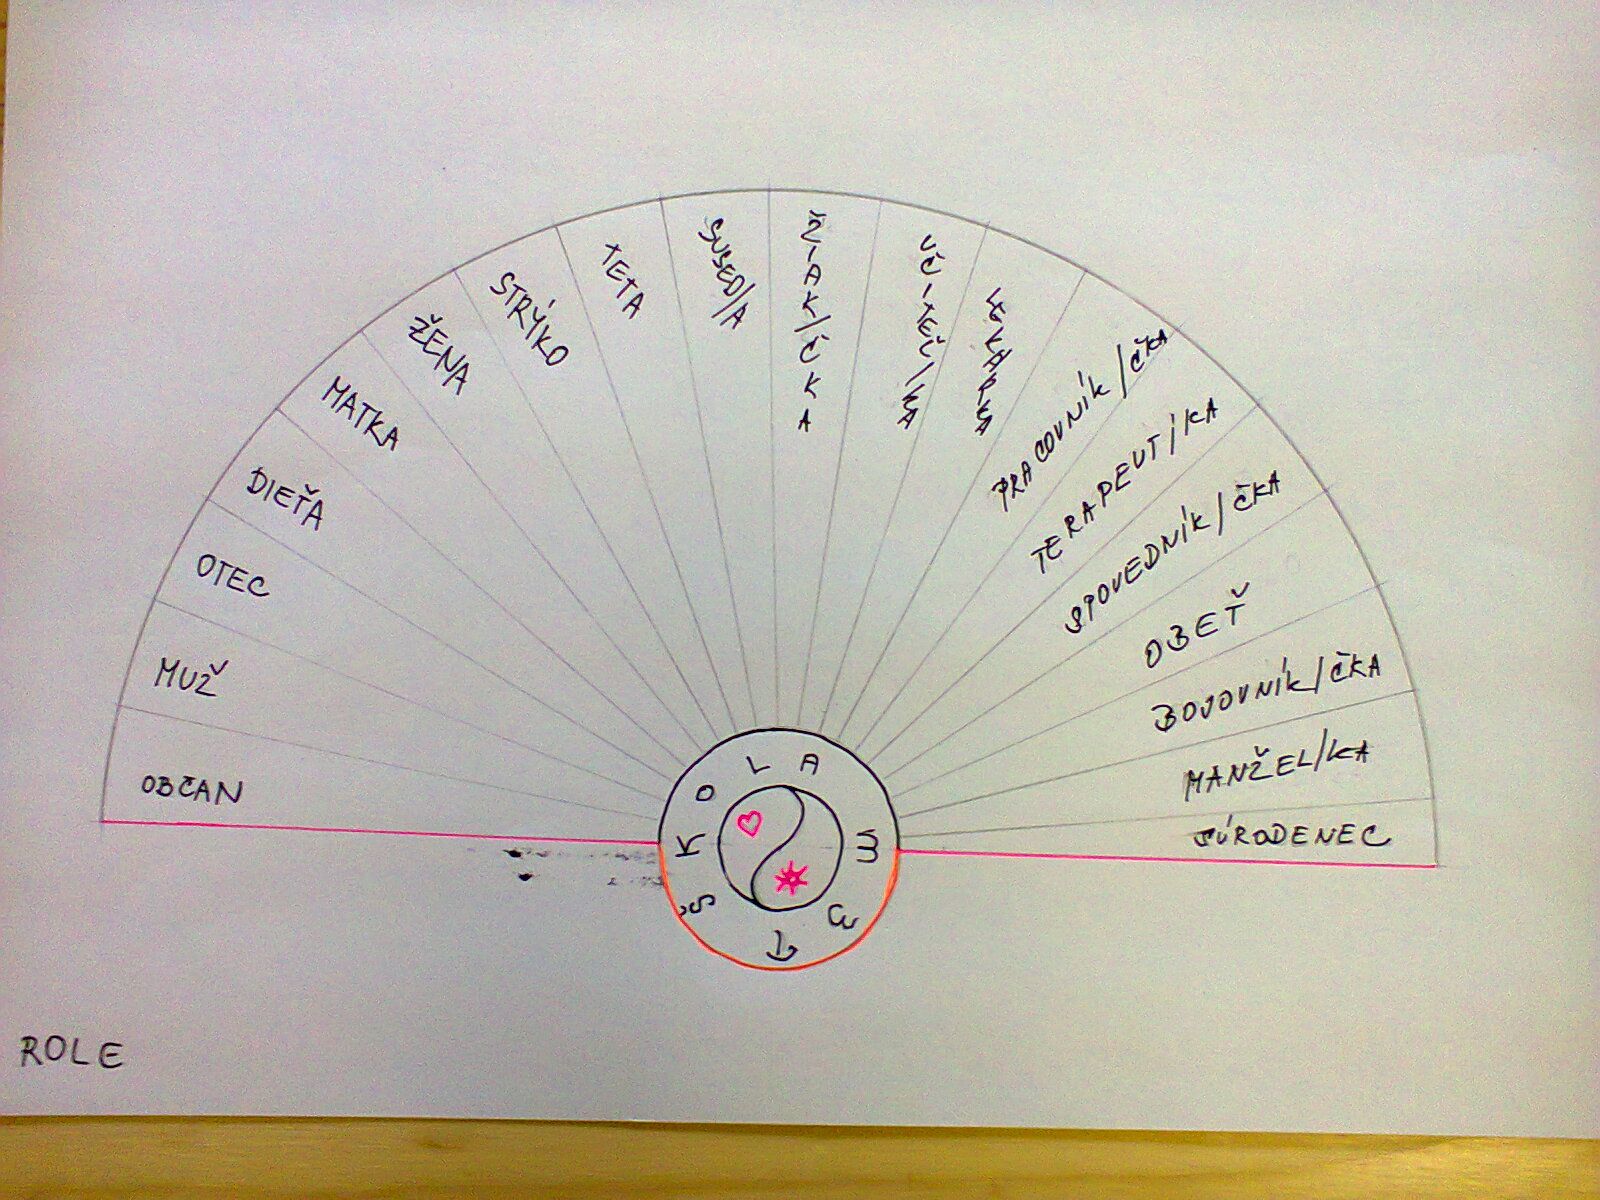 OBČAN
MUŽ
OTEC
DIEŤA
MATKA
ŽENA
STRÝKO
TETA
SUSED/A
ŽIAK/ČKA
PRACOVNÍK/ČKA
TERAPEUT/KA
SPOVEDNÍK/ČKA
OBEŤ
BOJOVNÍK/ČKA
MANŽEL/KA
SÚRODENEC
ŠKOLA
ROLE